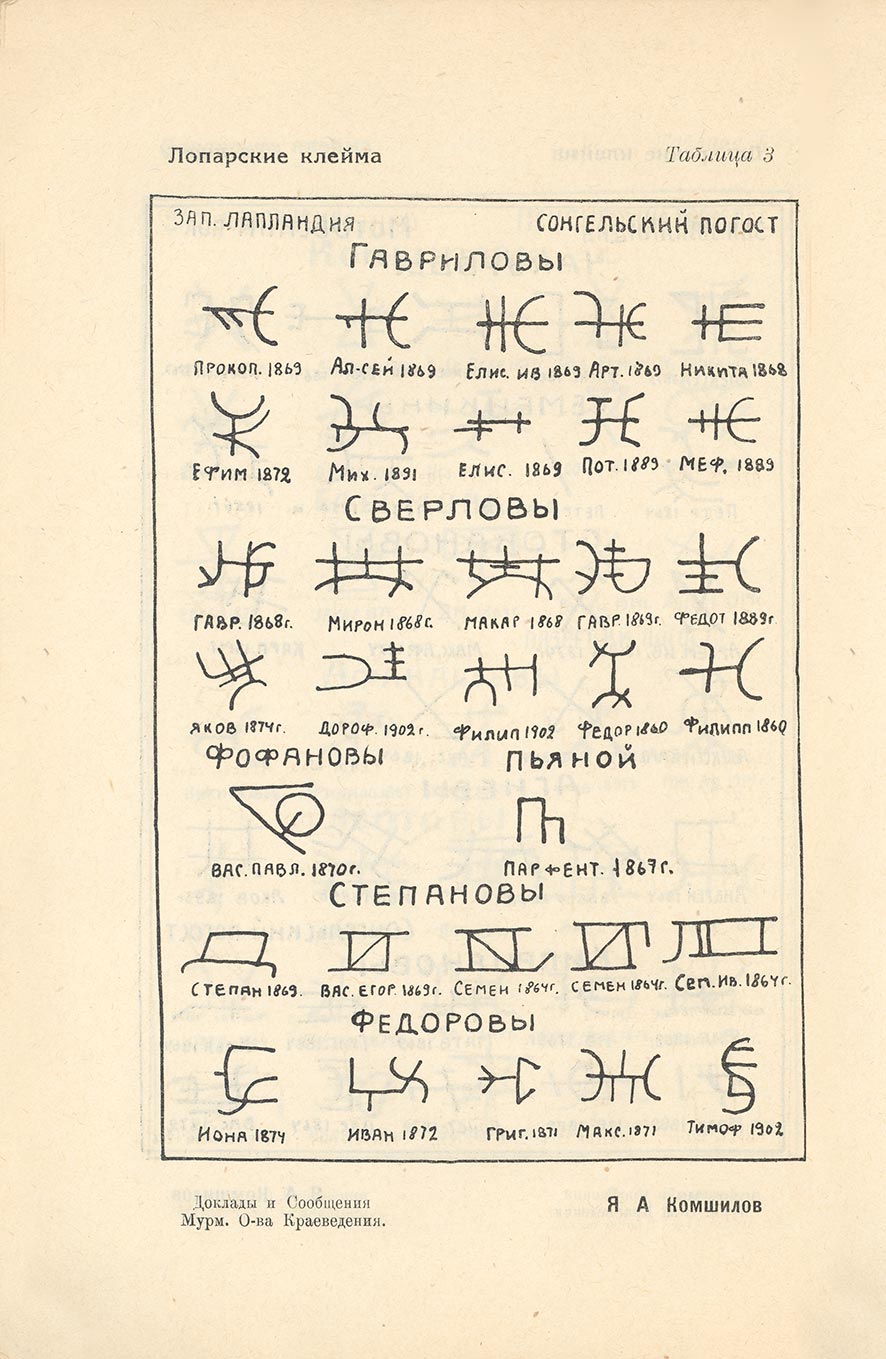 Лопарские клейма Таблица 3
ЗАП. ЛАПЛАНДИЯ СОНГЕЛЬСКИЙ ПОГОСТ
ГАВРИЛОВЫ
ПРОКОП. 1869 АЛ-СЕЙ 1869 ЕЛИС. ИВ 1869 АРТ. 1869 НИКИТА 1868
ЕФИМ 1872 МИХ. 1891 ЕЛИС. 1869 ПОТ. 1889 МЕФ. 1889
СВЕРЛОВЫ
ГАВР. 1868г. МИРОН 1868г. МАКАР 1868 ГАВР. 1869г. ФЕДОТ 1889г
ЯКОВ 1874г. ДОРОФ. 1902г. ФИЛИП 1902 ФЕДОР 1860 ФИЛИПП 1860
ФОФАНОВЫ ПЬЯНОЙ
ВАС. ПАВЛ. 1870г. ПАРФЕНТ. 1867г.
СТЕПАНОВЫ
СТЕПАН 1869. ВАС. ЕГОР. 1869г. СЕМЕН 1864г. СЕМЕН 1864г. Сеп. Ив. 1864г.
ФЕДОРОВЫ
ИОНА 1874 ИВАН 1872 ГРИГ. 1871 МАКС. 1871 ТИМОФ 1902
Доклады и Сообщения
Мурм. О-ва Краеведения.
Я А Комшилов